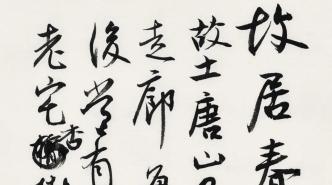 故居春
故土唐山
走廊
后當有
老宅杏